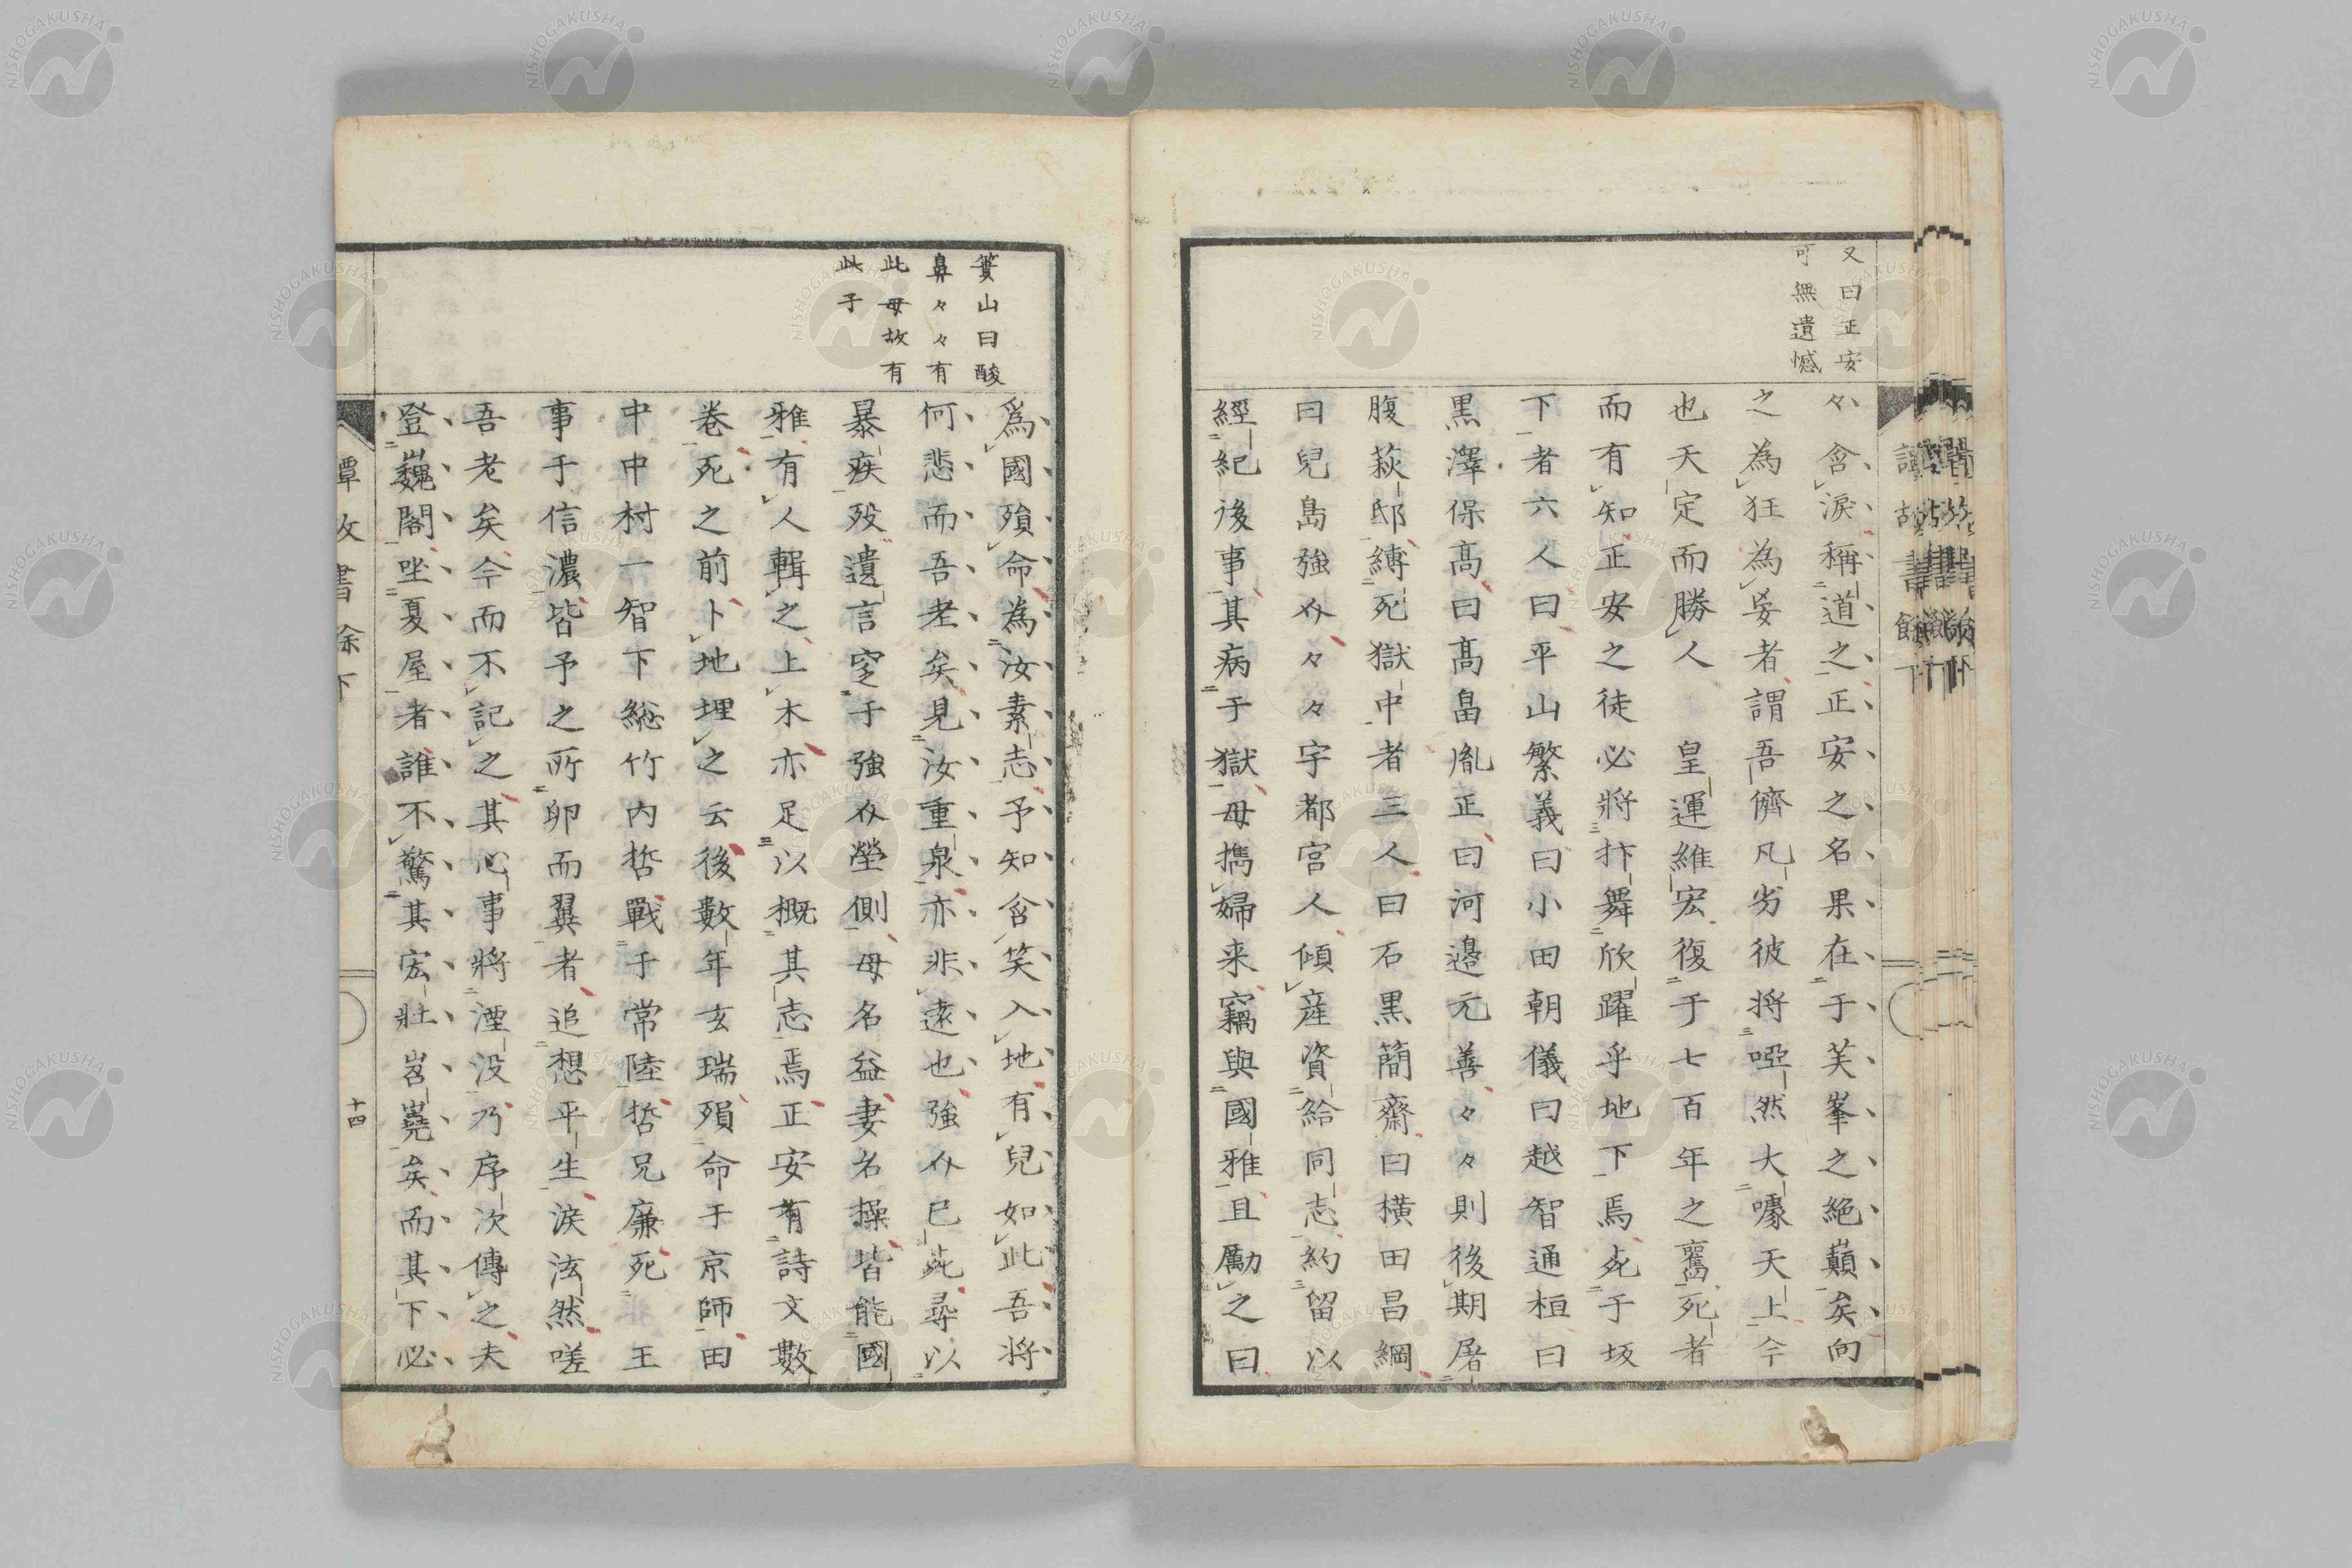 又曰正安
可無遺憾
々含淚稱道之正安之名果在于芙峯之絶巓矣向
之為狂為妄者謂吾儕凡劣彼將啞然大噱天上今
也天定而勝人 皇運維宏復于七百年之舊死者
而有知正安之徒必將抃舞欣躍乎地下焉死于坂
下者六人曰平山繁義曰小田朝儀曰越智通桓曰
黒澤保高曰高畠胤正曰河邉元善々々則後期屠
腹萩邸縛死獄中者三人曰石黒簡齋曰橫田昌綱
曰兒島強介々々宇都宮人傾産資給同志約留以
經紀後事其病于獄母携婦来竊與國雅且勵之曰
簣山曰酸
鼻々々有
此母故有
此子
爲國殞命為汝素志予知含笑入地有兒如此吾將
何悲而吾老矣見汝重泉亦非遠也強介已死尋以
暴疾歿遺言窆于強介塋側母名益妻名操皆能國
雅有人輯之上木亦足以概其志焉正安有詩文數
卷死之前卜地埋之云後數年玄瑞殞命于京師田
中中村一智下総竹内哲戰于常陸哲兄廉死 王
事于信濃皆予之所卵而翼者追想平生淚泫然嗟
吾老矣今而不記之其心事將湮没乃序次傳之夫
登巍閣坐夏屋者誰不驚其宏壯岧嶤矣而其下必
譚故書餘下
十四